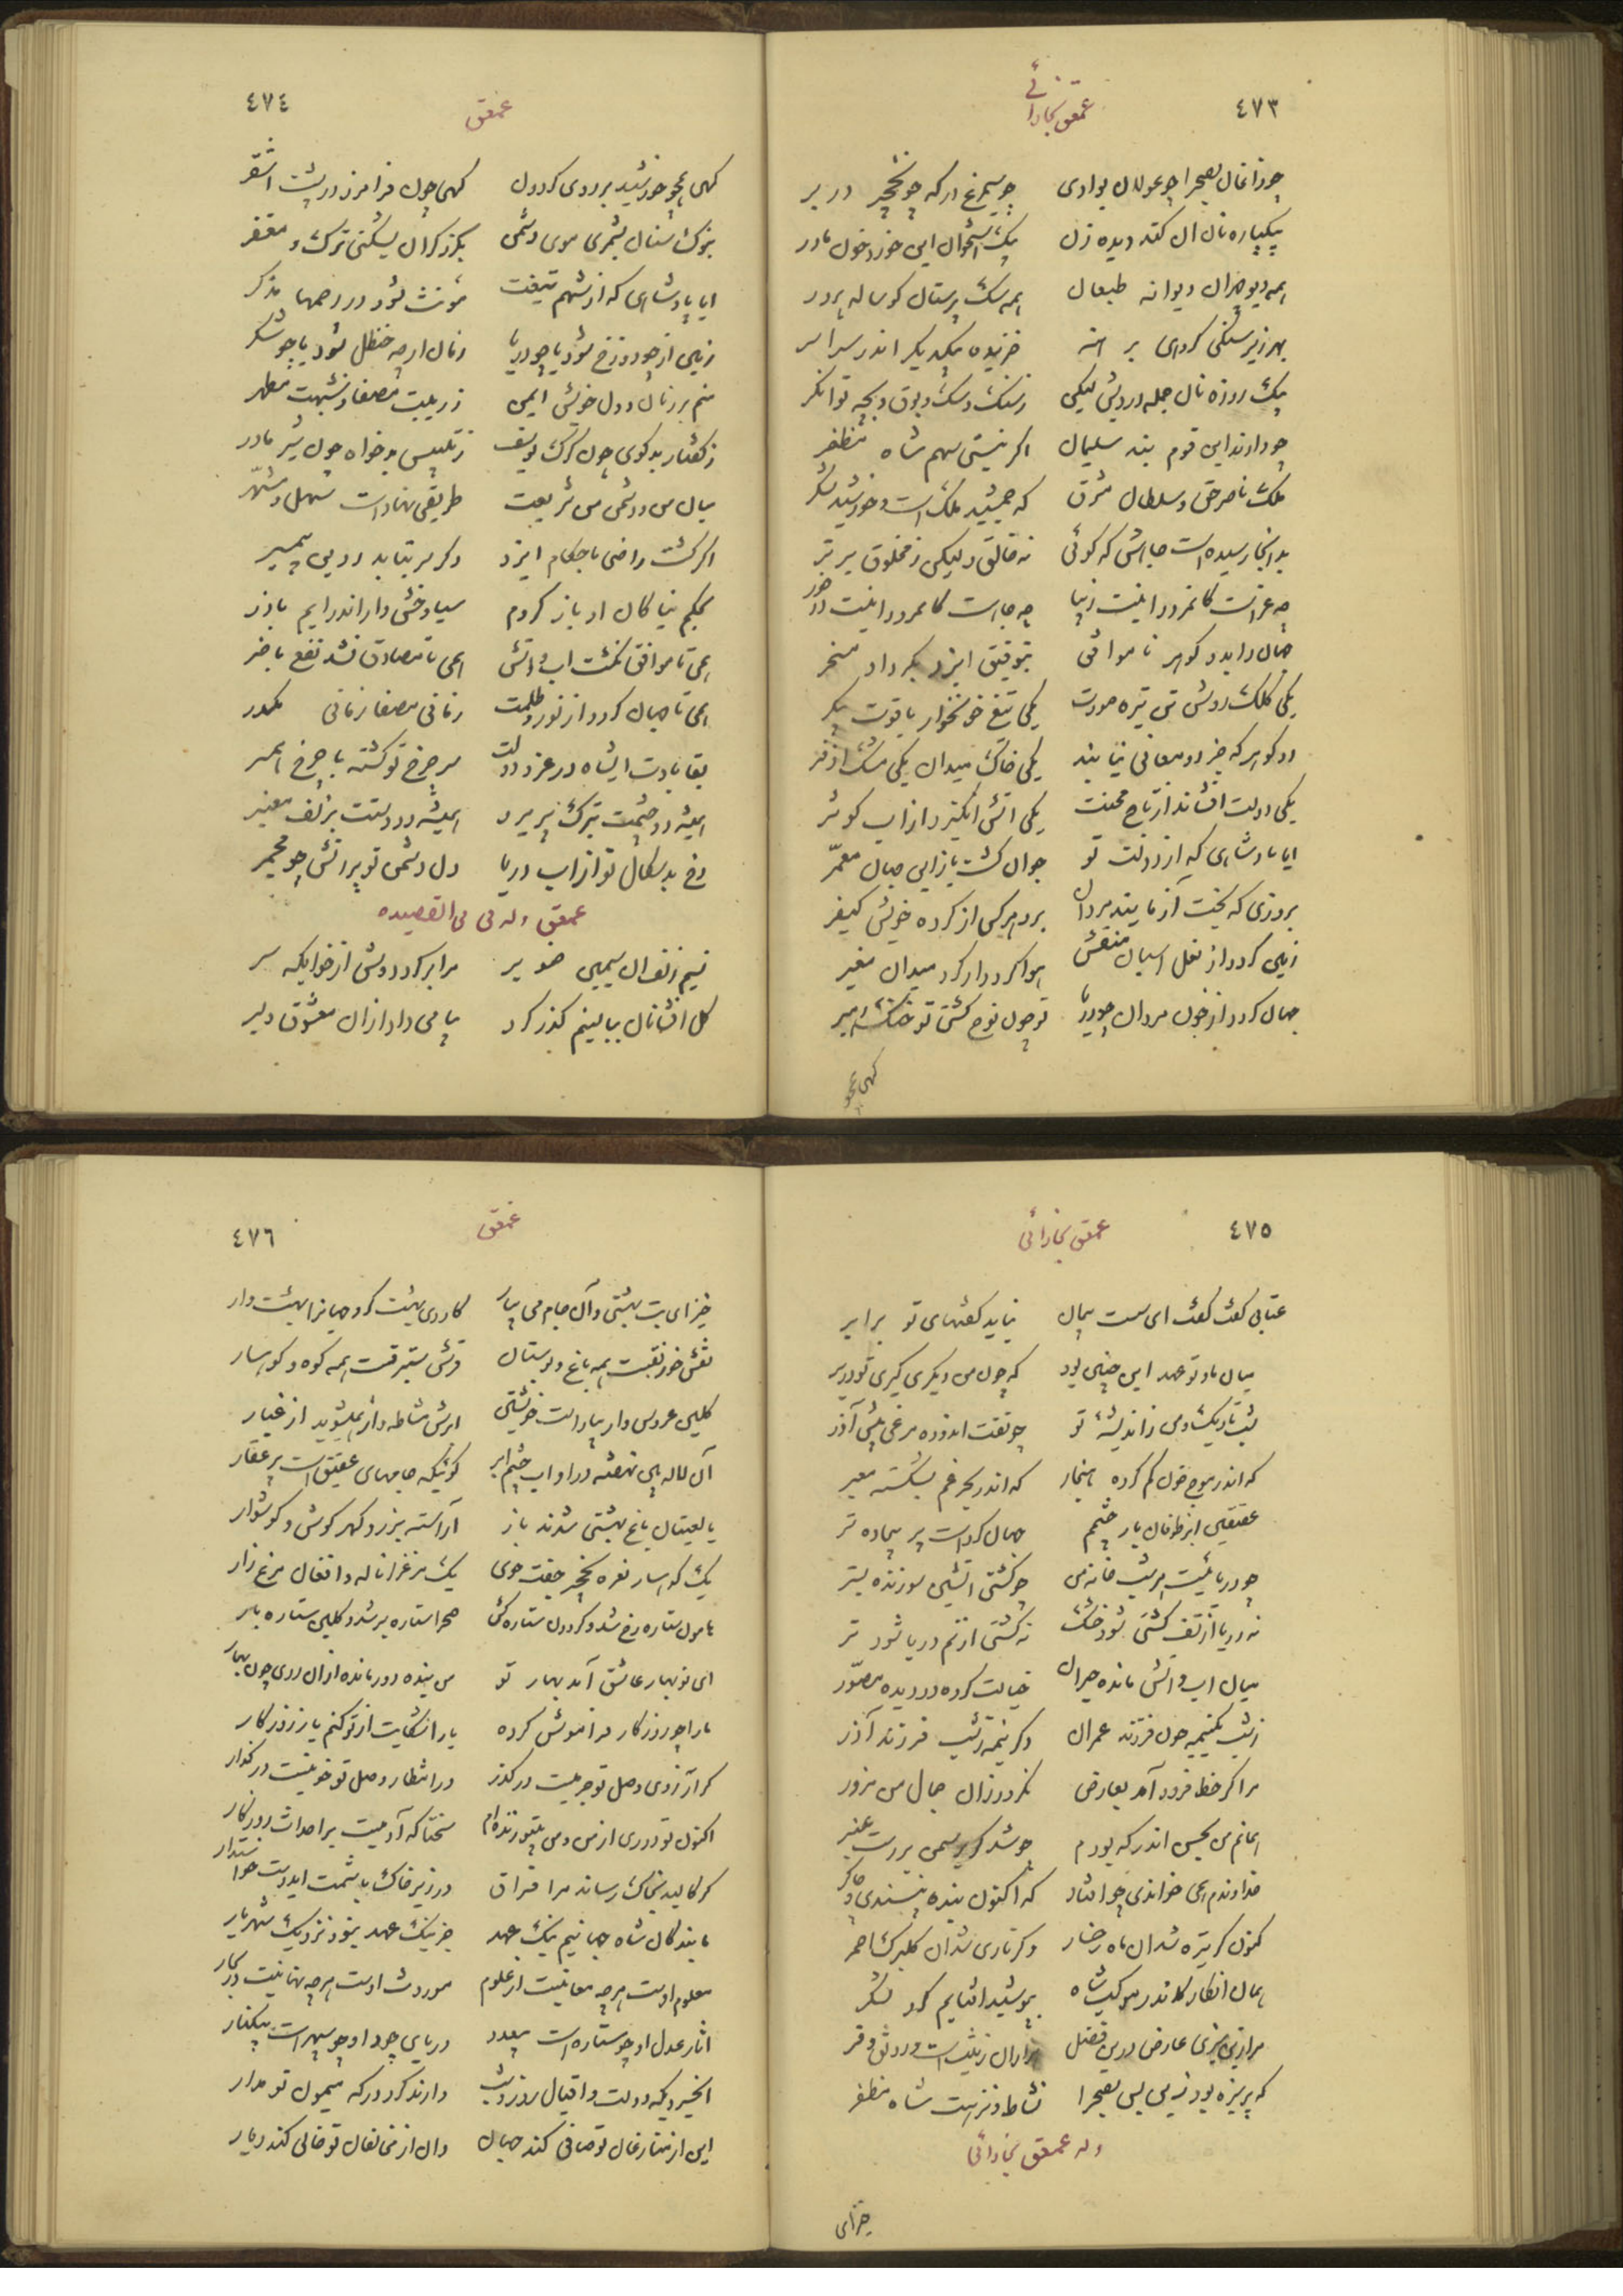 ٤٧٣ عمعق بخارائی
چو زاغان بصحرا چو غولان بوادی چو سیمرغ در که چو نخچیر در بر
بیکپاره نان ان کند دیده زن بیک استخوان این خورد خون مادر
همه دیو چهران دیوانه طبعان همه سک پرستان کوساله پرور
بهر زیر سنکی کروهی برهنه خزیده بیکدیکر اندر سراسر
بیک روزه نان جمله درویش لیکن زسنک و سک و بوق و بچه توانکر
چو دارند این قوم بند سلیمان اکر نیستی سهم شاه مظفر
ملک ناصر حق و سلطان مشرق که جمشید ملک است و خورشید لشکر
بدانجا رسیده است جاهش که کوئی نه خالق ولیکن زمخلوق برتر
چه عز است کانمر ورا نیست زیبا چه جاه است کانمر ورا نیست در خور
جهان را بدو کوهر ناموافق بتوفیق ایزد بکرد او مسخر
یکی کلک روشن تن تیره صورت یکی تیغ خونخوار یاقوت پیکر
دو کوهر که جز در معانی نیابند یکی خاک میدان یکی مشک اذفر
یکی دولت افشاند از تاج محنت یکی اتش انکیزد از اب کوثر
ایا پادشاهی که از دولت تو جوان کشت باز این جهان معمر
بروزی که بخت آزمایند مردان برد هر کس از کرده خویش کیفر
زمین کردد از نعل اسبان منقش هوا کردد از کرد میدان مغبر
جهان کردد از خون مردان چو دریا تو چون نوح کشتی تو خنک رهبر
کهی همچو
٤٧٤ عمعق
کهی همچو خورشید بر روی کردون کهی چون فرامرز در پشت اشقر
بنوک سنان بشمری موی دشمن بکرز کران بشکنی ترک و مغفر
ایا پادشاهی که از سهم تیغت مؤنث شود در رحمها مذکر
زمین از چو دوزخ شود یا چو دریا زمان ار چه حنظل شود یا چو شکر
منم بر زبان و دل خویش ایمن زریبت مصفا زشبهت مطهر
زکفتار بدکوی چون کرک یوسف زتلبیس بدخواه چون شیر مادر
میان من و دشمن من شریعت طریقی نهاد است سهل و مشهر
اکر کشت راضی باحکام ایزد وکر سر بتابد ز دین پیمبر
بحکم نیاکان او باز کردم سیاوخش وار اندر ایم باذر
همی تا موافق نکشت اب و اتش همی تا مصادق نشد نفع با ضر
همی تا جهان کردد از نور و ظلمت زمانی مصفا زمانی مکدر
بقا بادت ایشاه در عز و دولت سر چرخ تو کشته با چرخ همبر
همیشه دو چشمت بترک پریرو همیشه دو دستت بزلف معنبر
رخ بدسکال تو از اب دریا دل دشمن تو پر اتش چو مجمر
عمعق وله فی من القصیده
نسیم زلف ان سیمین صنوبر مرا بر کرد دوش از خوابکه سر
کل افشانان ببالینم کذر کرد پیامی داد ازان معشوق دلبر
٤٧٥ عمعق بخارائی
عتابی کفت کفت ای سست پیمان نیاید کفتهای تو برابر
میان ما و تو عهد این چنین بود که چون من دیکری کیری تو در بر
بشب تاریک و من زاندیشه تو چو تفت اندوده مرغی پیش آذر
که اندر موج خون کم کرده هنجار که اندر بحر غم بشکسته معبر
عقیقین ابر طوفان بار چشمم جهان کرد است پر بیجاده تر
چو دریائیست هر شب خانه من چو کشتی اتشین سوزنده بستر
نه دریا از تف کشتی شود خشک نه کشتی از نم دریا شود تر
میان اب و اتش مانده حیران خیالت کرده در دیده مصور
زشب یکنیمه چون فرزند عمران دکر نیمه زشب فرزند آذر
مرا کر خط فرود آمد بعارض نکردد زان جمال من مزور
همانم من بحسن اندر که بودم چو شد کر برسمن بررست عنبر
خداوندم همی خواندی چو افتاد که اکنون بنده نپسندی و چاکر
کنون کر تیره شد ان ماه رخسار وکر تاری شد ان کلبرک احمر
همان انکار کاندر موکب شاه بپوشید افتابم کرد لشکر
مرا زین سبزی عارض درین فصل هزاران زینت است و رونق و فر
که پر سبزه بود زمین بس بصحرا نشاط و نزهت شاه مظفر
وله عمعق بخارائی
خیز ای
٤٧٦ عمعق
خیز ای بت بهشتی وآن جام می بیار کاردی بهشت کرد جهانرا بهشت وار
نقش خورنقست همه باغ و بوستان فرش ستبرقست همه کوه و کوهسار
کلبن عروس وار بیاراست خویشتن ابرش مشاطه وار همیشوید از غبار
آن لاله بین نهفته در او اب چشم ابر کوئیکه جامهای عقیق است پر عقار
یا لعبتان باغ بهشتی شدند باز آراسته بزر و کهر کوش و کوشوار
یک کوهسار نعره نخچیر جفت جوی یک مرغزار ناله و افغان مرغ زار
هامون ستاره رخ شد و کردون ستاره کش صحرا ستاره بر شد و کلبن ستاره بار
ای نوبهار عاشق آمد بهار نو من بنده دور مانده ازان روی چون بهار
ما را چو روزکار فراموش کرده یارا شکایت از تو کنم یا ز روزکار
کر آرزوی وصل تو جرمیست درکذر ور انتظار وصل تو خونیست درکذار
اکنون تو دوری از من و من بیتو زنده ام سختا که آدمیست بر احداث روزکار
کر کالبد بخاک رساند مرا فراق در زیر خاک باشمت ایدوست خواستدار
ما بندکان شاه جهانیم نیک عهد جز نیک عهد نبود نزدیک شهریار
معلوم اوست هرچه معانیست از علوم موروث اوست هرچه نهانیست در بحار
اثار عدل او چو ستاره است بیعدد دریای جود او چو سپهر است بیکنار
انجیر ویکه دولت و اقبال روز و شب دارند کرد درکه میمون تو مدار
این از منازعان تو صافی کند جهان وان از مخالفان تو خالی کند دیار